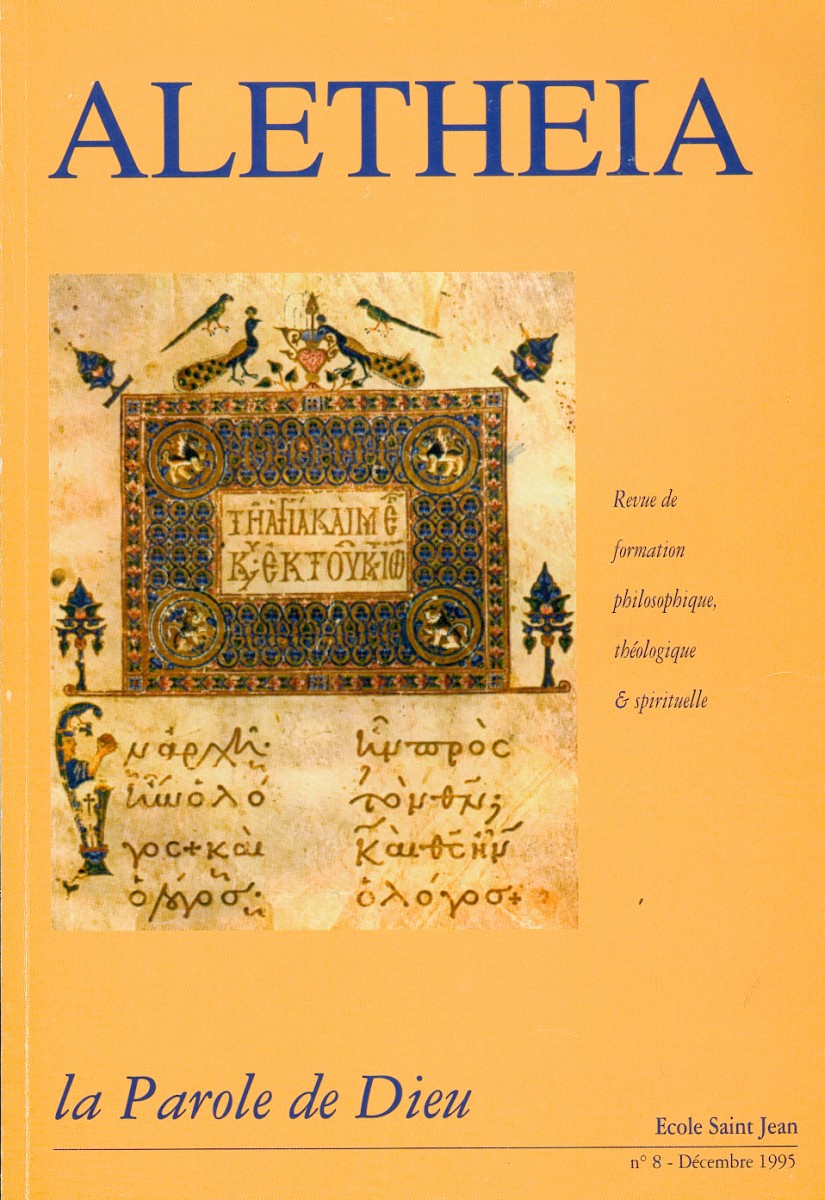 ALETHEIA
ΤΗ ΑΓΙΑ ΚΑΙ ΜΕ
Κυ; ΕΚ ΤΟΥ Κ ΙΩ
Ἐν ἀρχῆ·
ἦν ὁ λό
γος + καὶ
ὁ λόγοσ·
ἦν πρὸς
τὸν θν;
καὶ θς ἦν
ὁ λόγοσ+
Revue de
formation
philosophique,
théologique
& spirituelle
la Parole de Dieu
Ecole Saint Jean
n° 8 - Décembre 1995